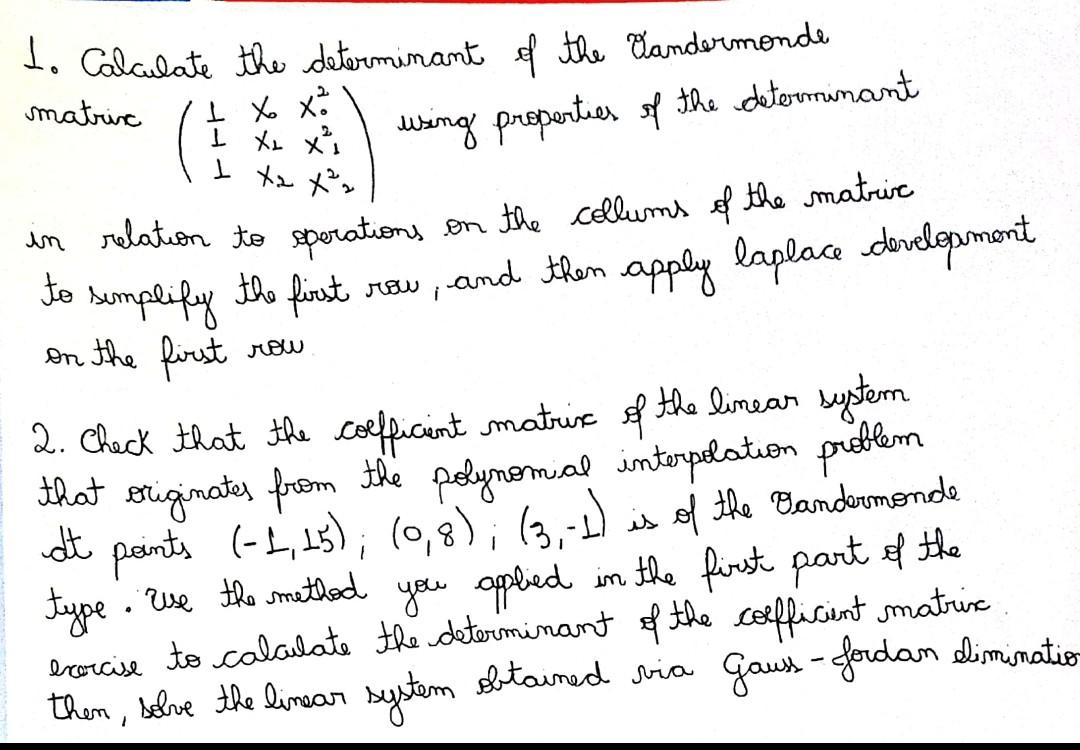 1. Calculate the determinant of the Vandermonde
matrix ( 1 x₀ x₀²
1 x₁ x²₁
1 x₂ x²₂ ) using properties of the determinant
in relation to operations on the collums of the matrix
to simplify the first row, and then apply laplace development
on the first row
2. Check that the coefficient matrix of the linear system
that originates from the polynomial interpolation problem
dt points (-1,15); (0,8); (3,-1) is of the Vandermonde
type. Use the method you applied in the first part of the
exercise to calculate the determinant of the coefficient matrix.
then, solve the linear system obtained via Gauss-Jordan eliminatio